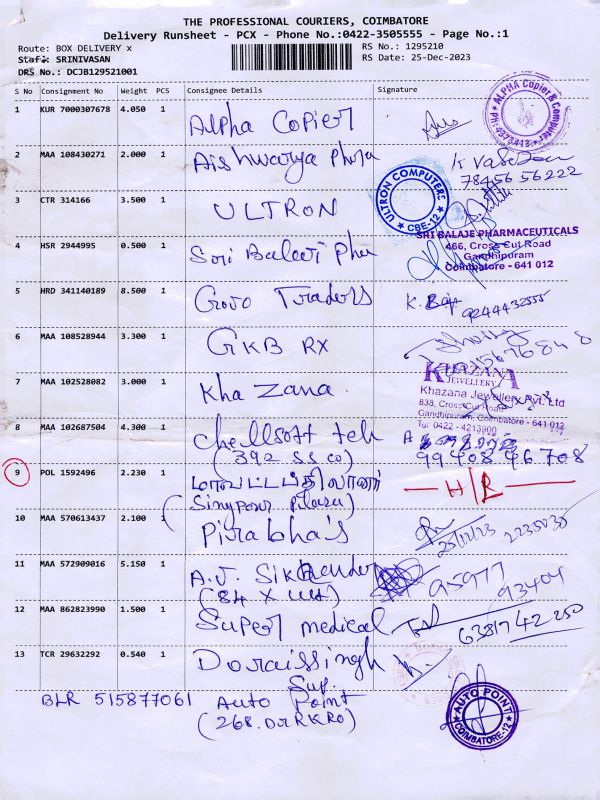 THE PROFESSIONAL COURIERS, COIMBATORE
Delivery Runsheet - PCX - Phone No.:0422-3505555 - Page No.:1
Route: BOX DELIVERY x
RS No.: 1295210
Staff: SRINIVASAN
RS Date: 25-Dec-2023
DRS No.: DCJB129521001
S No Consignment No Weight PCS Consignee Details Signature
1 KUR 7000307678 4.050 1 Alpha Copier
ALPHA Copier & Computer
Ph: 4373413
2 MAA 108430271 2.000 1 Aishwarya
78456 56222
3 CTR 314166 3.500 1 ULTRON
ULTRON COMPUTERS
CBE-12
4 HSR 2944995 0.500 1 Sri Balaji
SRI BALAJE PHARMACEUTICALS
466, Cross Cut Road
Gandhipuram
Coimbatore - 641 012
5 HRD 341140189 8.500 1 Traders
9244432555
6 MAA 108528944 3.300 1 GKB RX
7 MAA 102528082 3.000 1 Khazana
KHAZANA
JEWELLERY
Khazana Jewellery Pvt. Ltd
838, Cross Cut Road
Gandhipuram, Coimbatore - 641 012
Tel: 0422 - 4213900
8 MAA 102687504 4.300 1 Chellsoft teh
(392 SS CO)
99408 46708
9 POL 1592496 2.230 1
(Singapour Plaza) H/R
10 MAA 570613437 2.100 1 Pirabha's
25/12/23
11 MAA 572909016 5.150 1 A.J. Sikkender
95977
93404
12 MAA 862823990 1.500 1 Super medical
638742 250
13 TCR 29632292 0.540 1 Doraissingh
Sup.
BLR 515877061 Auto Point
AUTO POINT
COIMBATORE-12